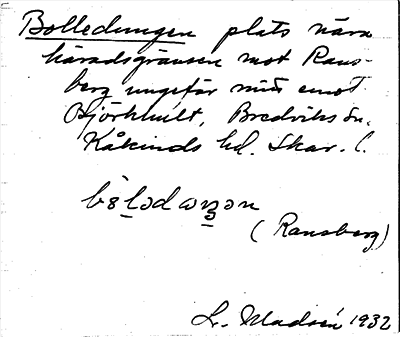 Bolledungen plats nära
häradsgränsen mot Rans-
berg ungefär mitt emot
Björkhult, Bredviks sn.
Kåkinds hd. Skar. l.
(Ransberg)
1932